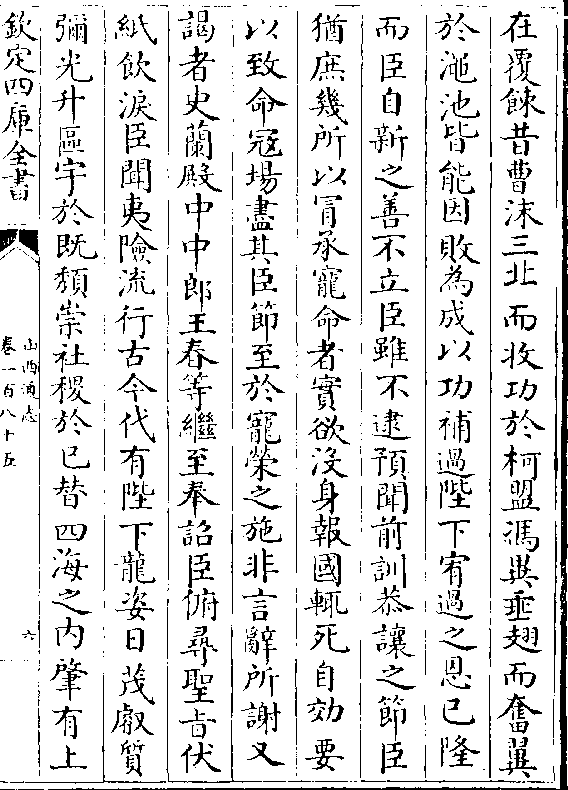 在覆餗昔曹沫三北而收功於柯盟馮異垂翅而奮翼
於澠池皆能因敗為成以功補過陛下宥過之恩已隆
而臣自新之善不立臣雖不逮預聞前訓恭讓之節臣
猶庶幾所以冒承寵命者實欲沒身報國輒死自効要
以致命冦場盡其臣節至於寵榮之施非言辭所謝又
謁者史蘭殿中中郎王春等繼至奉詔臣俯尋聖旨伏
紙飲淚臣聞夷險流行古今代有陛下龍姿日茂叡質
彌光升區宇於既頽崇社稷於已替四海之内肇有上
欽定四庫全書
山西通志
卷一百八十五
六